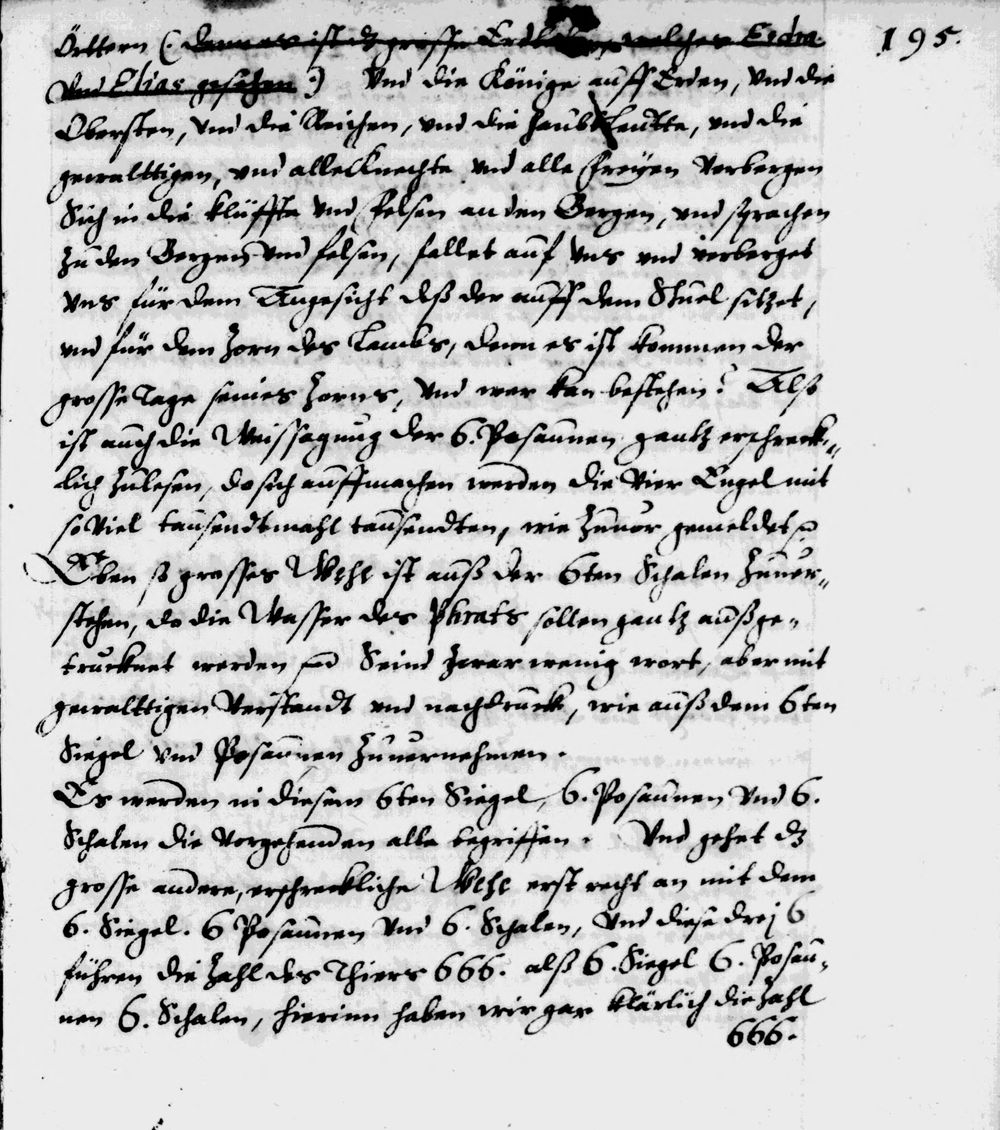 195.
Örttern (: denn es ist dz grosse Erdbeben welches Esdra
Vnd Elias gesehen :) Vnd die Könige auff Erden, Vnd die
Obersten, Vnd die Reichen, vnd die Haubtleutte, vnd die
gewalttigen, vnd alle Knechte vnd alle Freyen Verbergen
Sich in die klüffte Vnd felsen an den Bergen, vnd sprachen
Zu den Bergen vnd felsen, fallet auf Vns vnd verberget
Vns für dem Angesicht deß der auff dem Stuel sitzet,
vnd für dem Zorn des Lambs, denn es ist kommen der
grosse Tage seines Zorns, Vnd wer kan bestehen? Alß
ist auch die Weissagung der 6. Posaunen gantz erschreck„
lich Zulesen, do sich auffmachen werden die Vier Engel mit
so Viel tausendtmahl tausendten, wie Zuuor gemeldet
Eben so grosses Wehe ist auß der 6ten Schalen Zuuer„
stehen, do die Wasser des Phrats sollen gantz außge„
trucknet werden Seind Zwar wenig wort, aber mit
gewalttigen Verstandt vnd nachdruck, wie auß dem 6ten
Siegel Vnd Posaunen Zuuernehmen.
Es werden in diesem 6ten Siegel, 6. Posaunen Vnd 6.
Schalen die Vorgehenden alle begriffen. Vnd gehet dz
grosse andere, erschreckliche Wehe erst recht an mit dem
6. Siegel. 6 Posaunen Vnd 6. Schalen, Vnd diese drej 6
führen die Zahl des Thiers 666. alß 6. Siegel 6. Posau„
nen 6. Schalen, hierinn haben wir gar klärlich die Zahl
666.